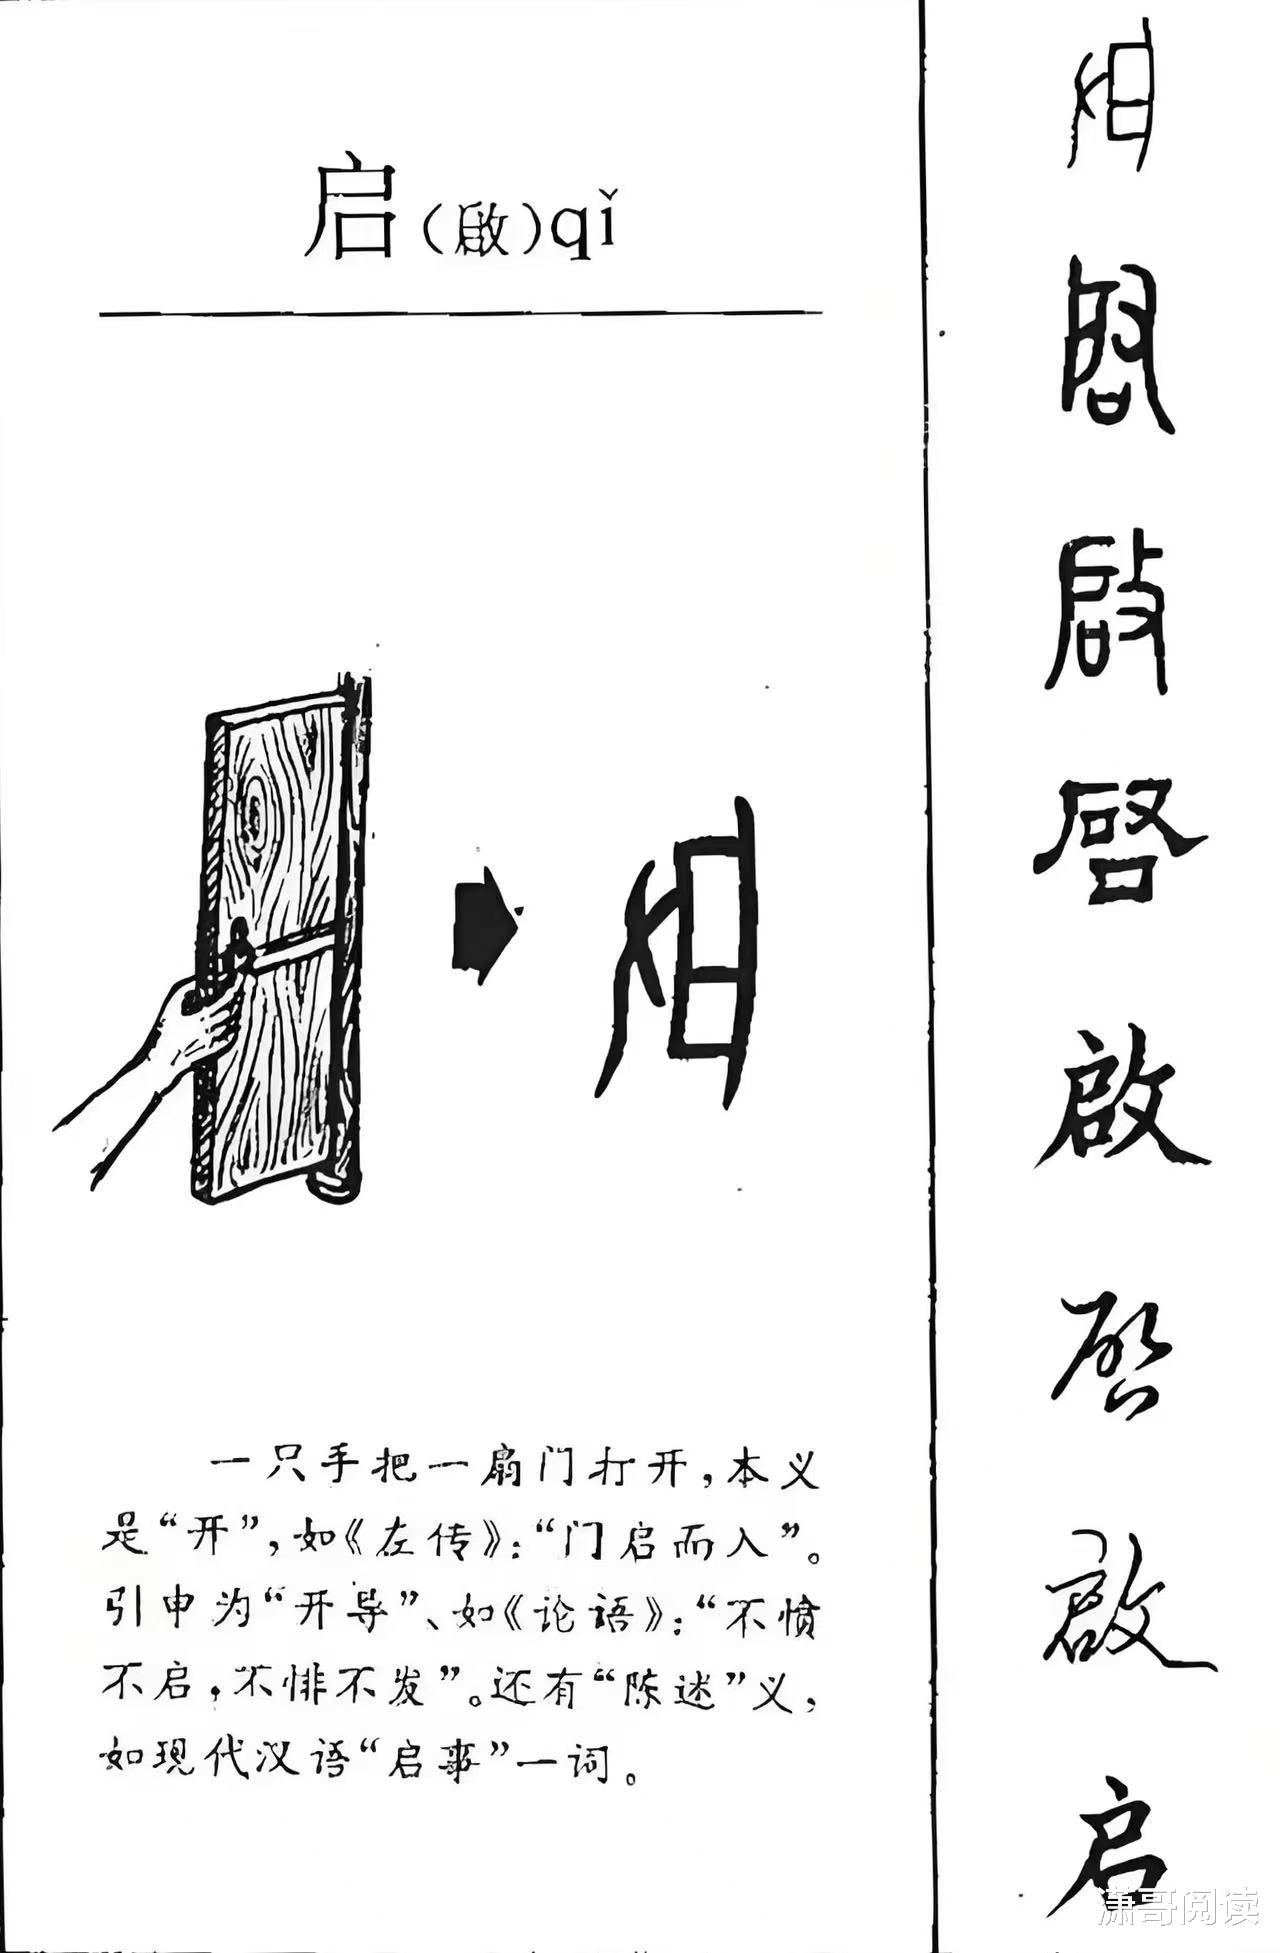 启(啟)qǐ
一只手把一扇门打开，本义
是“开”，如《左传》：“门启而入”。
引申为“开导”、如《论语》：“不愤
不启，不悱不发”。还有“陈述”义，
如现代汉语“启事”一词。
启
啟
啟
啓
啟
启
啟
启
潇哥阅读